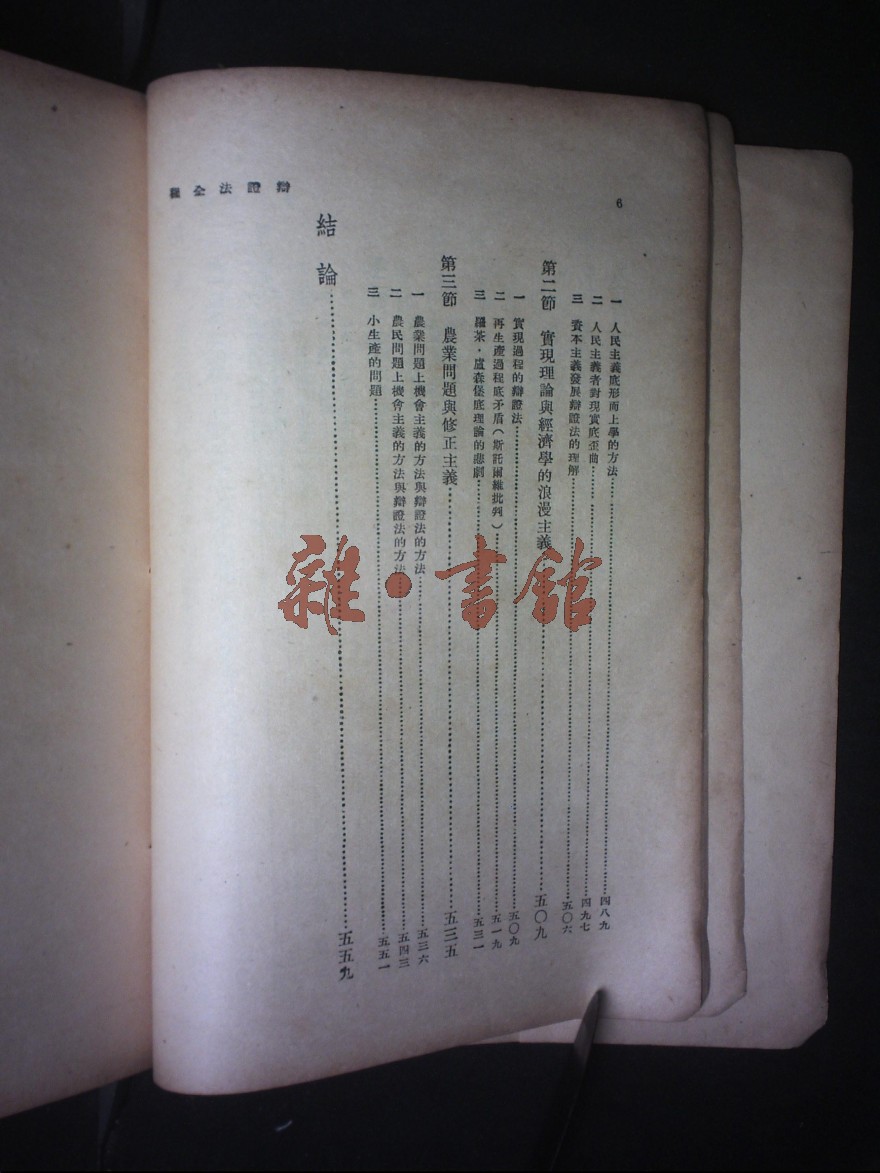 6
一 人民主義底形而上學的方法……四八九
二 人民主義者對現實底歪曲……四九七
三 資本主義發展辯證法的理解……五〇六
第二節 實現理論與經濟學的浪漫主義……五〇九
一 實現過程的辯證法……五〇九
二 再生產過程底矛盾(斯託爾維批判)……五一九
三 羅茶·盧森堡底理論的悲劇……五三一
第三節 農業問題與修正主義……五三五
一 農業問題上機會主義的方法與辯證法的方法……五三六
二 農民問題上機會主義的方法與辯證法的方法……五四三
三 小生產的問題……五五一
結論……五五九
辯證法全程
雜·書館